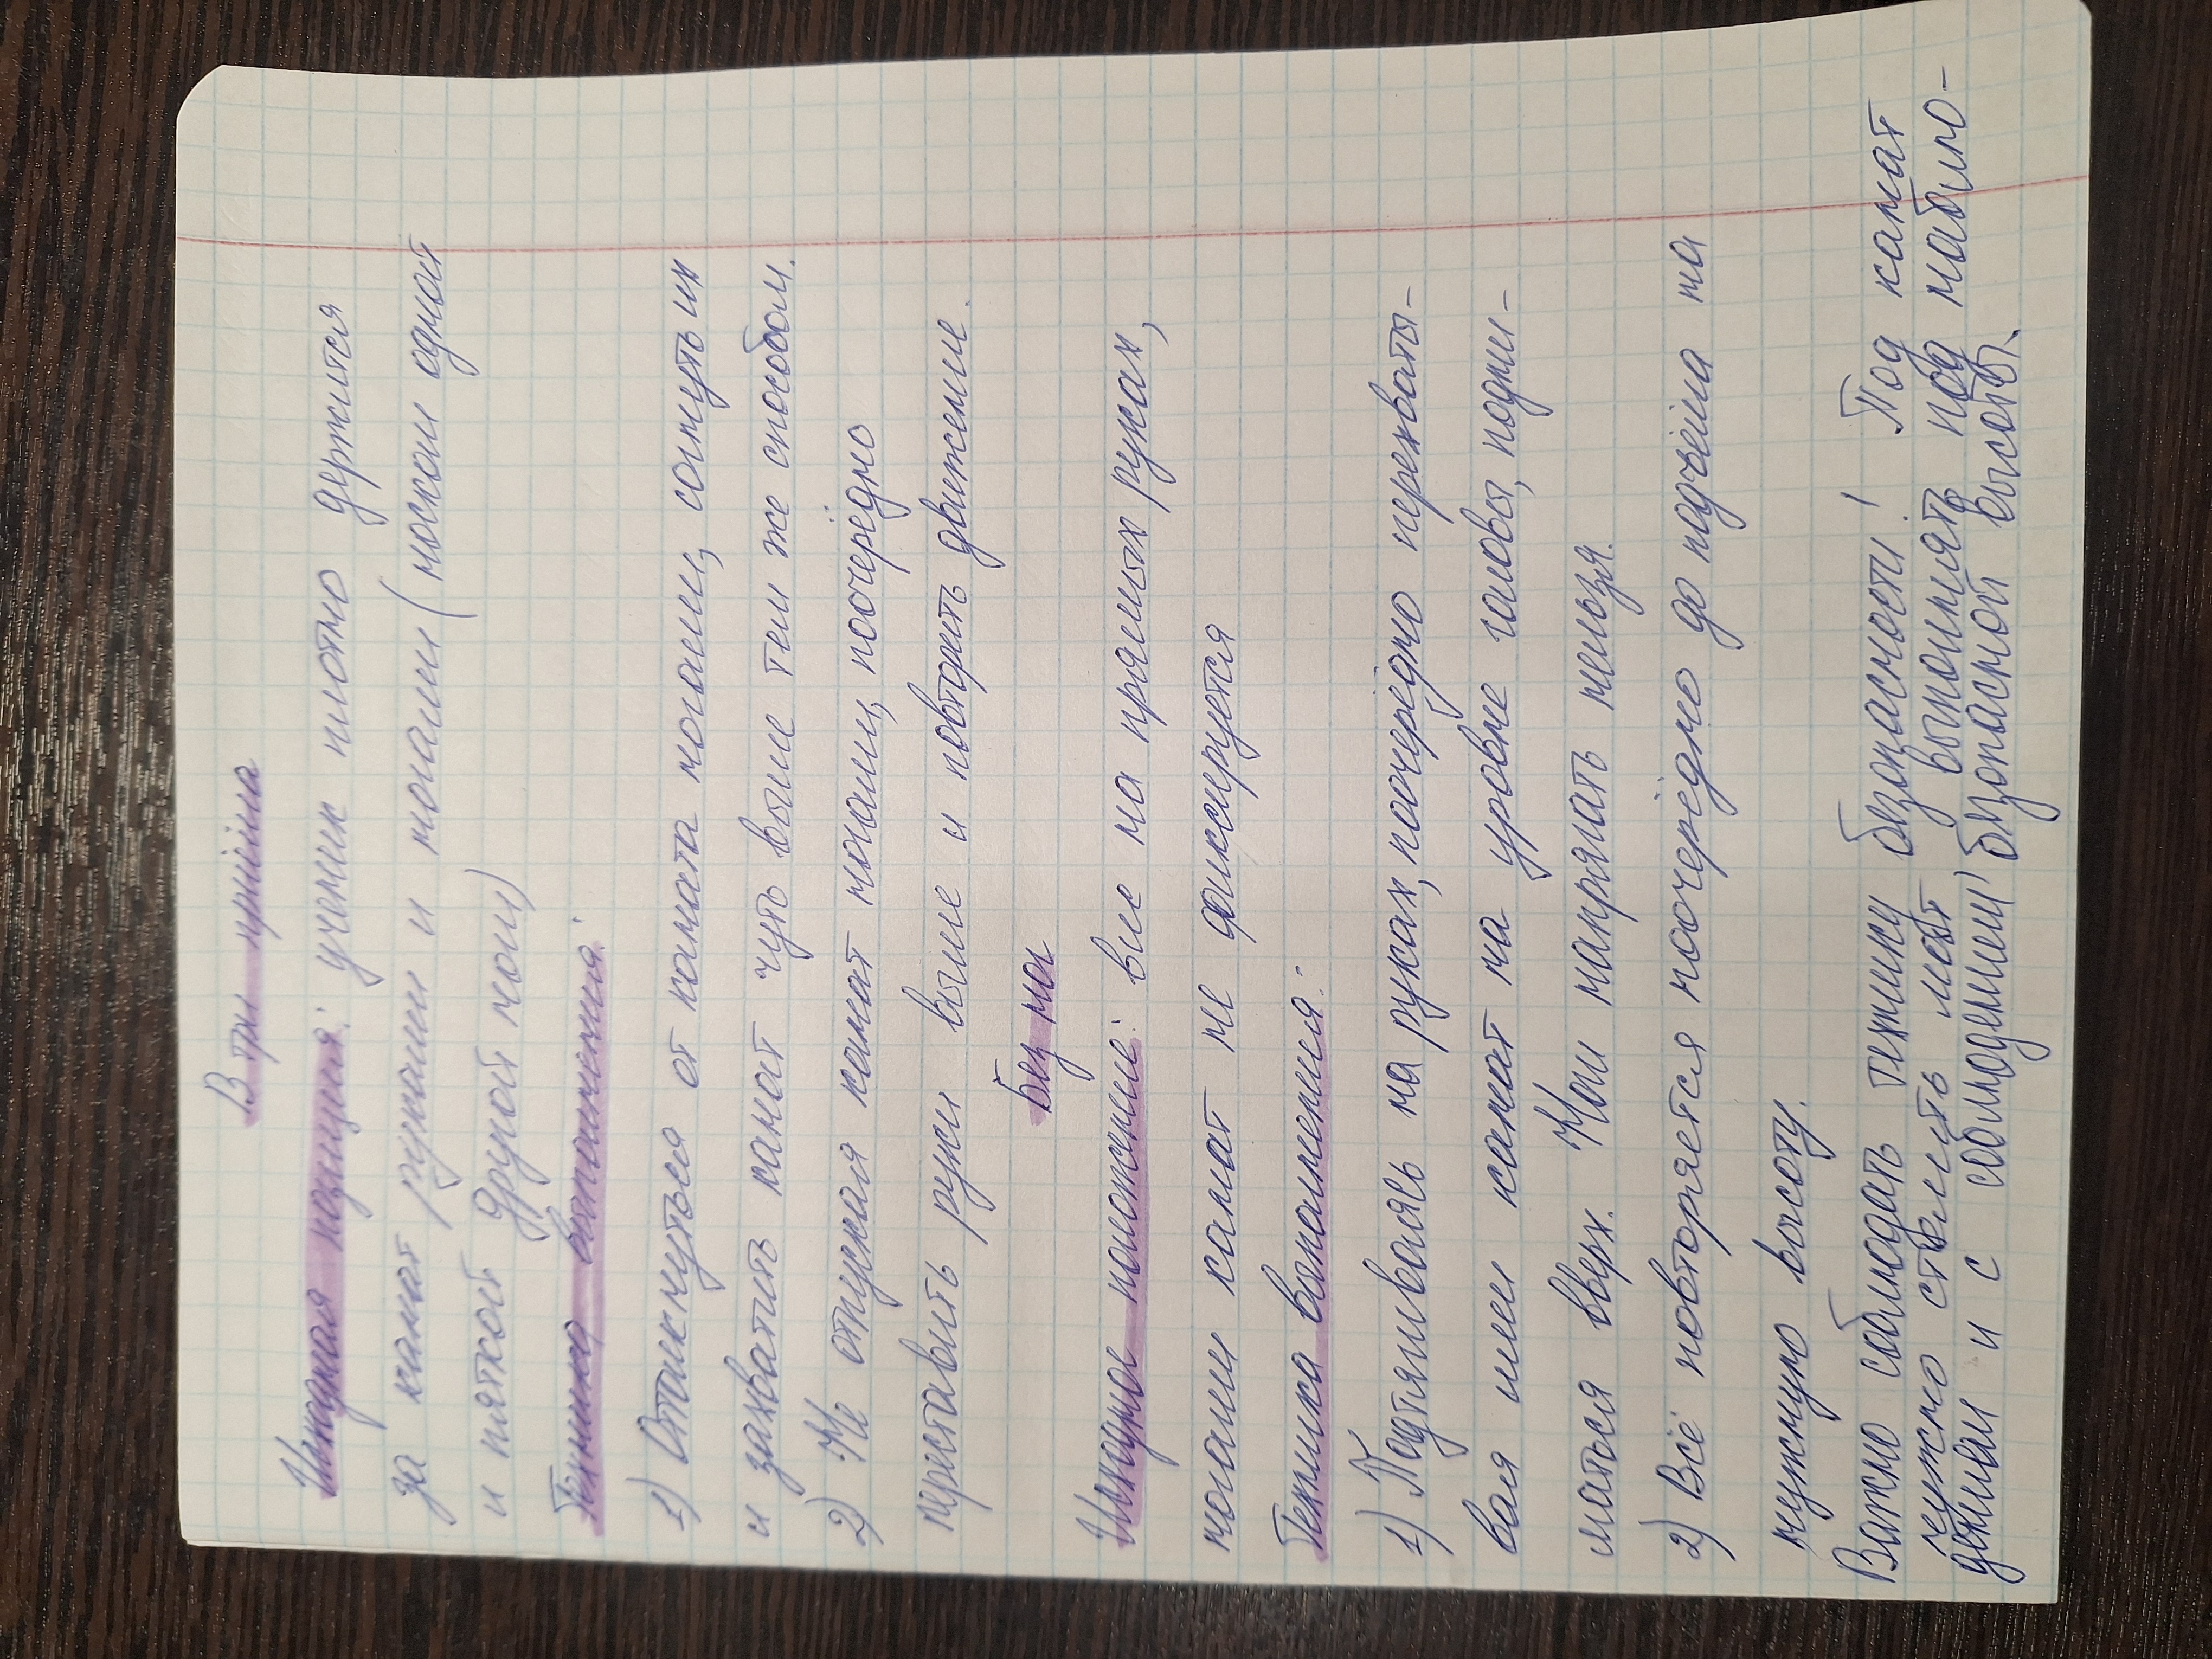 В три приёма
Исходная позиция: ученик плотно держится
за канат руками и ногами (носком одной
и пяткой другой ноги)
Техника выполнения:
1) Оттолкнуться от каната ногами, согнуть их
и захватить канат чуть выше тем же способом.
2) Не отпуская канат ногами, поочерёдно
переставить руки выше и повторить движение.
Без ног
Исходное положение: вис на прямых руках,
ногами канат не фиксируется
Техника выполнения:
1) Подтягиваясь на руках, поочерёдно перехваты-
вая ими канат на уровне головы, подни-
маться вверх. Ноги напрягать нельзя.
2) Всё повторяется поочерёдно до подъёма на
нужную высоту.
Важно соблюдать технику безопасности! Под канат
нужно стелить мат, выполнять под наблю-
дением и с соблюдением безопасной высоты.